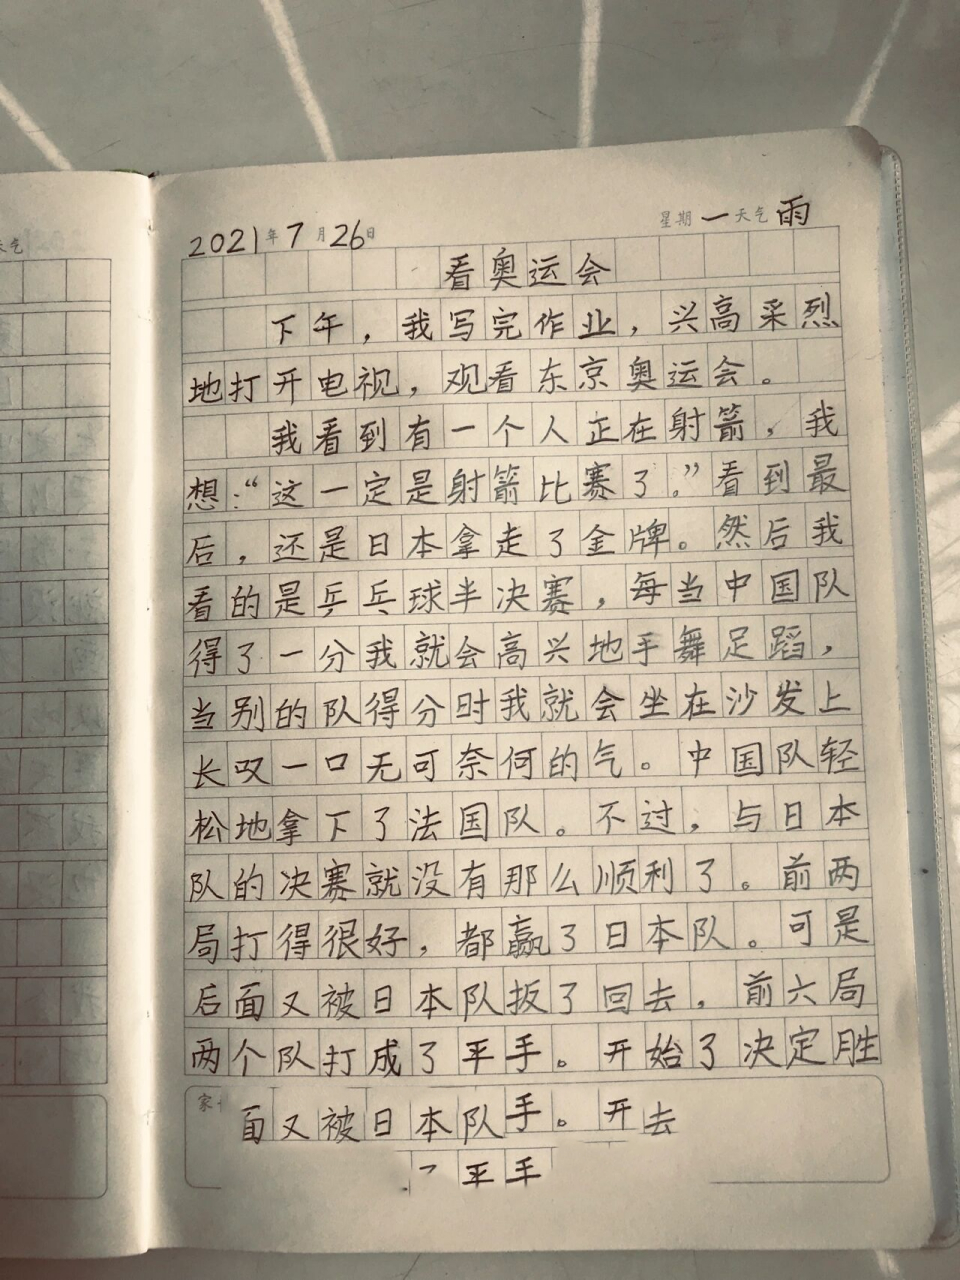 2021年7月26日 星期一天气雨
看奥运会
下午，我写完作业，兴高采烈
地打开电视，观看东京奥运会。
我看到有一个人正在射箭，我
想：“这一定是射箭比赛了。”看到最
后，还是日本拿走了金牌。然后我
看的是乒乓球半决赛，每当中国队
得了一分我就会高兴地手舞足蹈，
当别的队得分时我就会坐在沙发上
长叹一口无可奈何的气。中国队轻
松地拿下了法国队。不过，与日本
队的决赛就没有那么顺利了。前两
局打得很好，都赢了日本队。可是
后面又被日本队扳了回去，前六局
两个队打成了平手。开始了决定胜
家
面又被日本队手。开去
平手